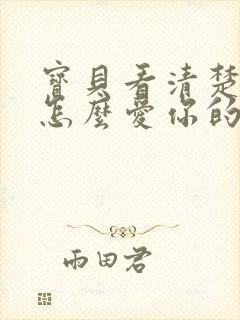 寶貝看清楚
怎麼愛你的
雨田君